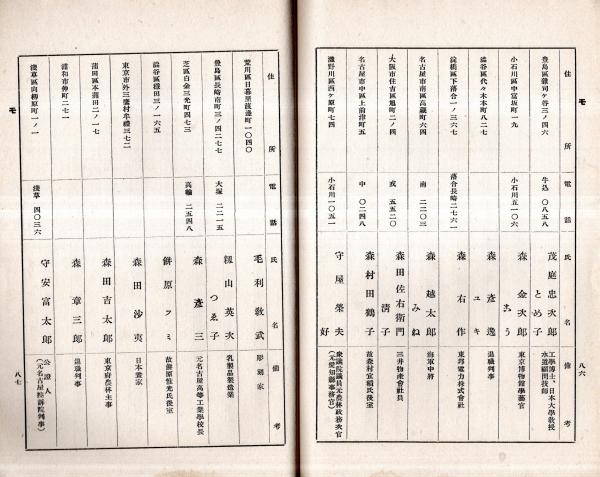 モ
住所
電話
氏名
備考
豊島區雜司ヶ谷三ノ四六
牛込 〇八五八
茂庭忠次郎
とめ子
工學博士、日本大學教授
水道顧問技師
小石川區中富坂町一九
小石川五一〇六
森金次郎
こう
東京博物館學藝官
澁谷區代々木本町八二七
森彥逸
ユキ
退職判事
淀橋區下落合一ノ三六七
落合長崎二七六一
森右作
東邦電力株式會社
名古屋市南區高藏町六四
南 二二〇三
森越太郎
みね
海軍中將
大阪市住吉區旭町二ノ四
戎 五五二〇
森田佐右衛門
清子
三井物產會社員
名古屋市中區上前津町五
中 〇二四八
森村田鶴子
故森村宜稻氏後室
瀧野川區西ヶ原町七四
小石川一〇五一
守屋榮夫
好
衆議院議員元農林政務次官
(元愛知縣事務官)
八六
モ
住所
電話
氏名
備考
荒川區日暮里渡邊町一〇四〇
毛利敎武
彫刻家
豊島區長崎南町三ノ四二七七
大塚 二二一五
籾山英次
つゑ子
乳製品製造業
芝區白金三光町四七三
高輪 二五四八
森彥三
元名古屋高等工業學校長
澁谷區穩田三ノ一六五
餅原フミ
故餅原惟光氏後室
東京市外三鷹村牟禮三七二
森田沙夷
日本畫家
蒲田區本蒲田二ノ一七
森田吉太郎
東京府農林主事
浦和市仲町二七一
森章三郎
退職判事
淺草區向柳原町一ノ一
淺草 四〇三六
守安富太郎
公證人
(元名古屋控訴院判事)
八七